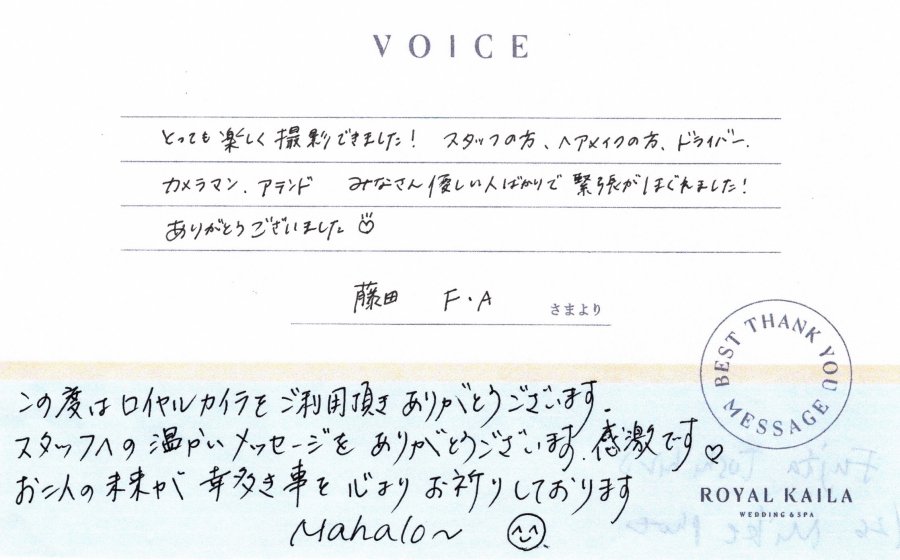 VOICE
とっても楽しく撮影できました! スタッフの方、ヘアメイクの方、ドライバー、
カメラマン、アテンド みなさん優しい人ばかりで緊張がほぐれました!
ありがとうございました
藤田 F・A さまより
BEST THANK YOU MESSAGE
この度はロイヤルカイラをご利用頂きありがとうございます。
スタッフへの温かいメッセージをありがとうございます。感激です♡
お二人の未来が幸多き事を心よりお祈りしております
Mahalo~
ROYAL KAILA
WEDDING & SPA